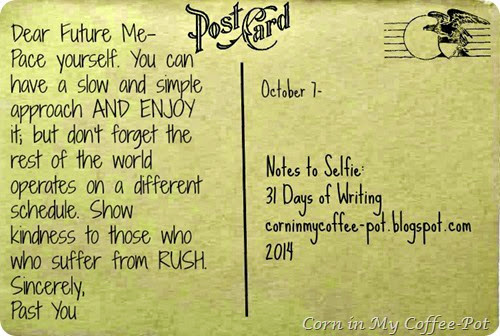 Post Card
Dear Future Me-
Pace yourself. You can
have a slow and simple
approach AND ENJOY
it; but don't forget the
rest of the world
operates on a different
schedule. Show
kindness to those who
who suffer from RUSH.
Sincerely,
Past You
October 7-
Notes to Selfie:
31 Days of Writing
corninmycoffee-pot.blogspot.com
2014
Corn in My Coffee-Pot